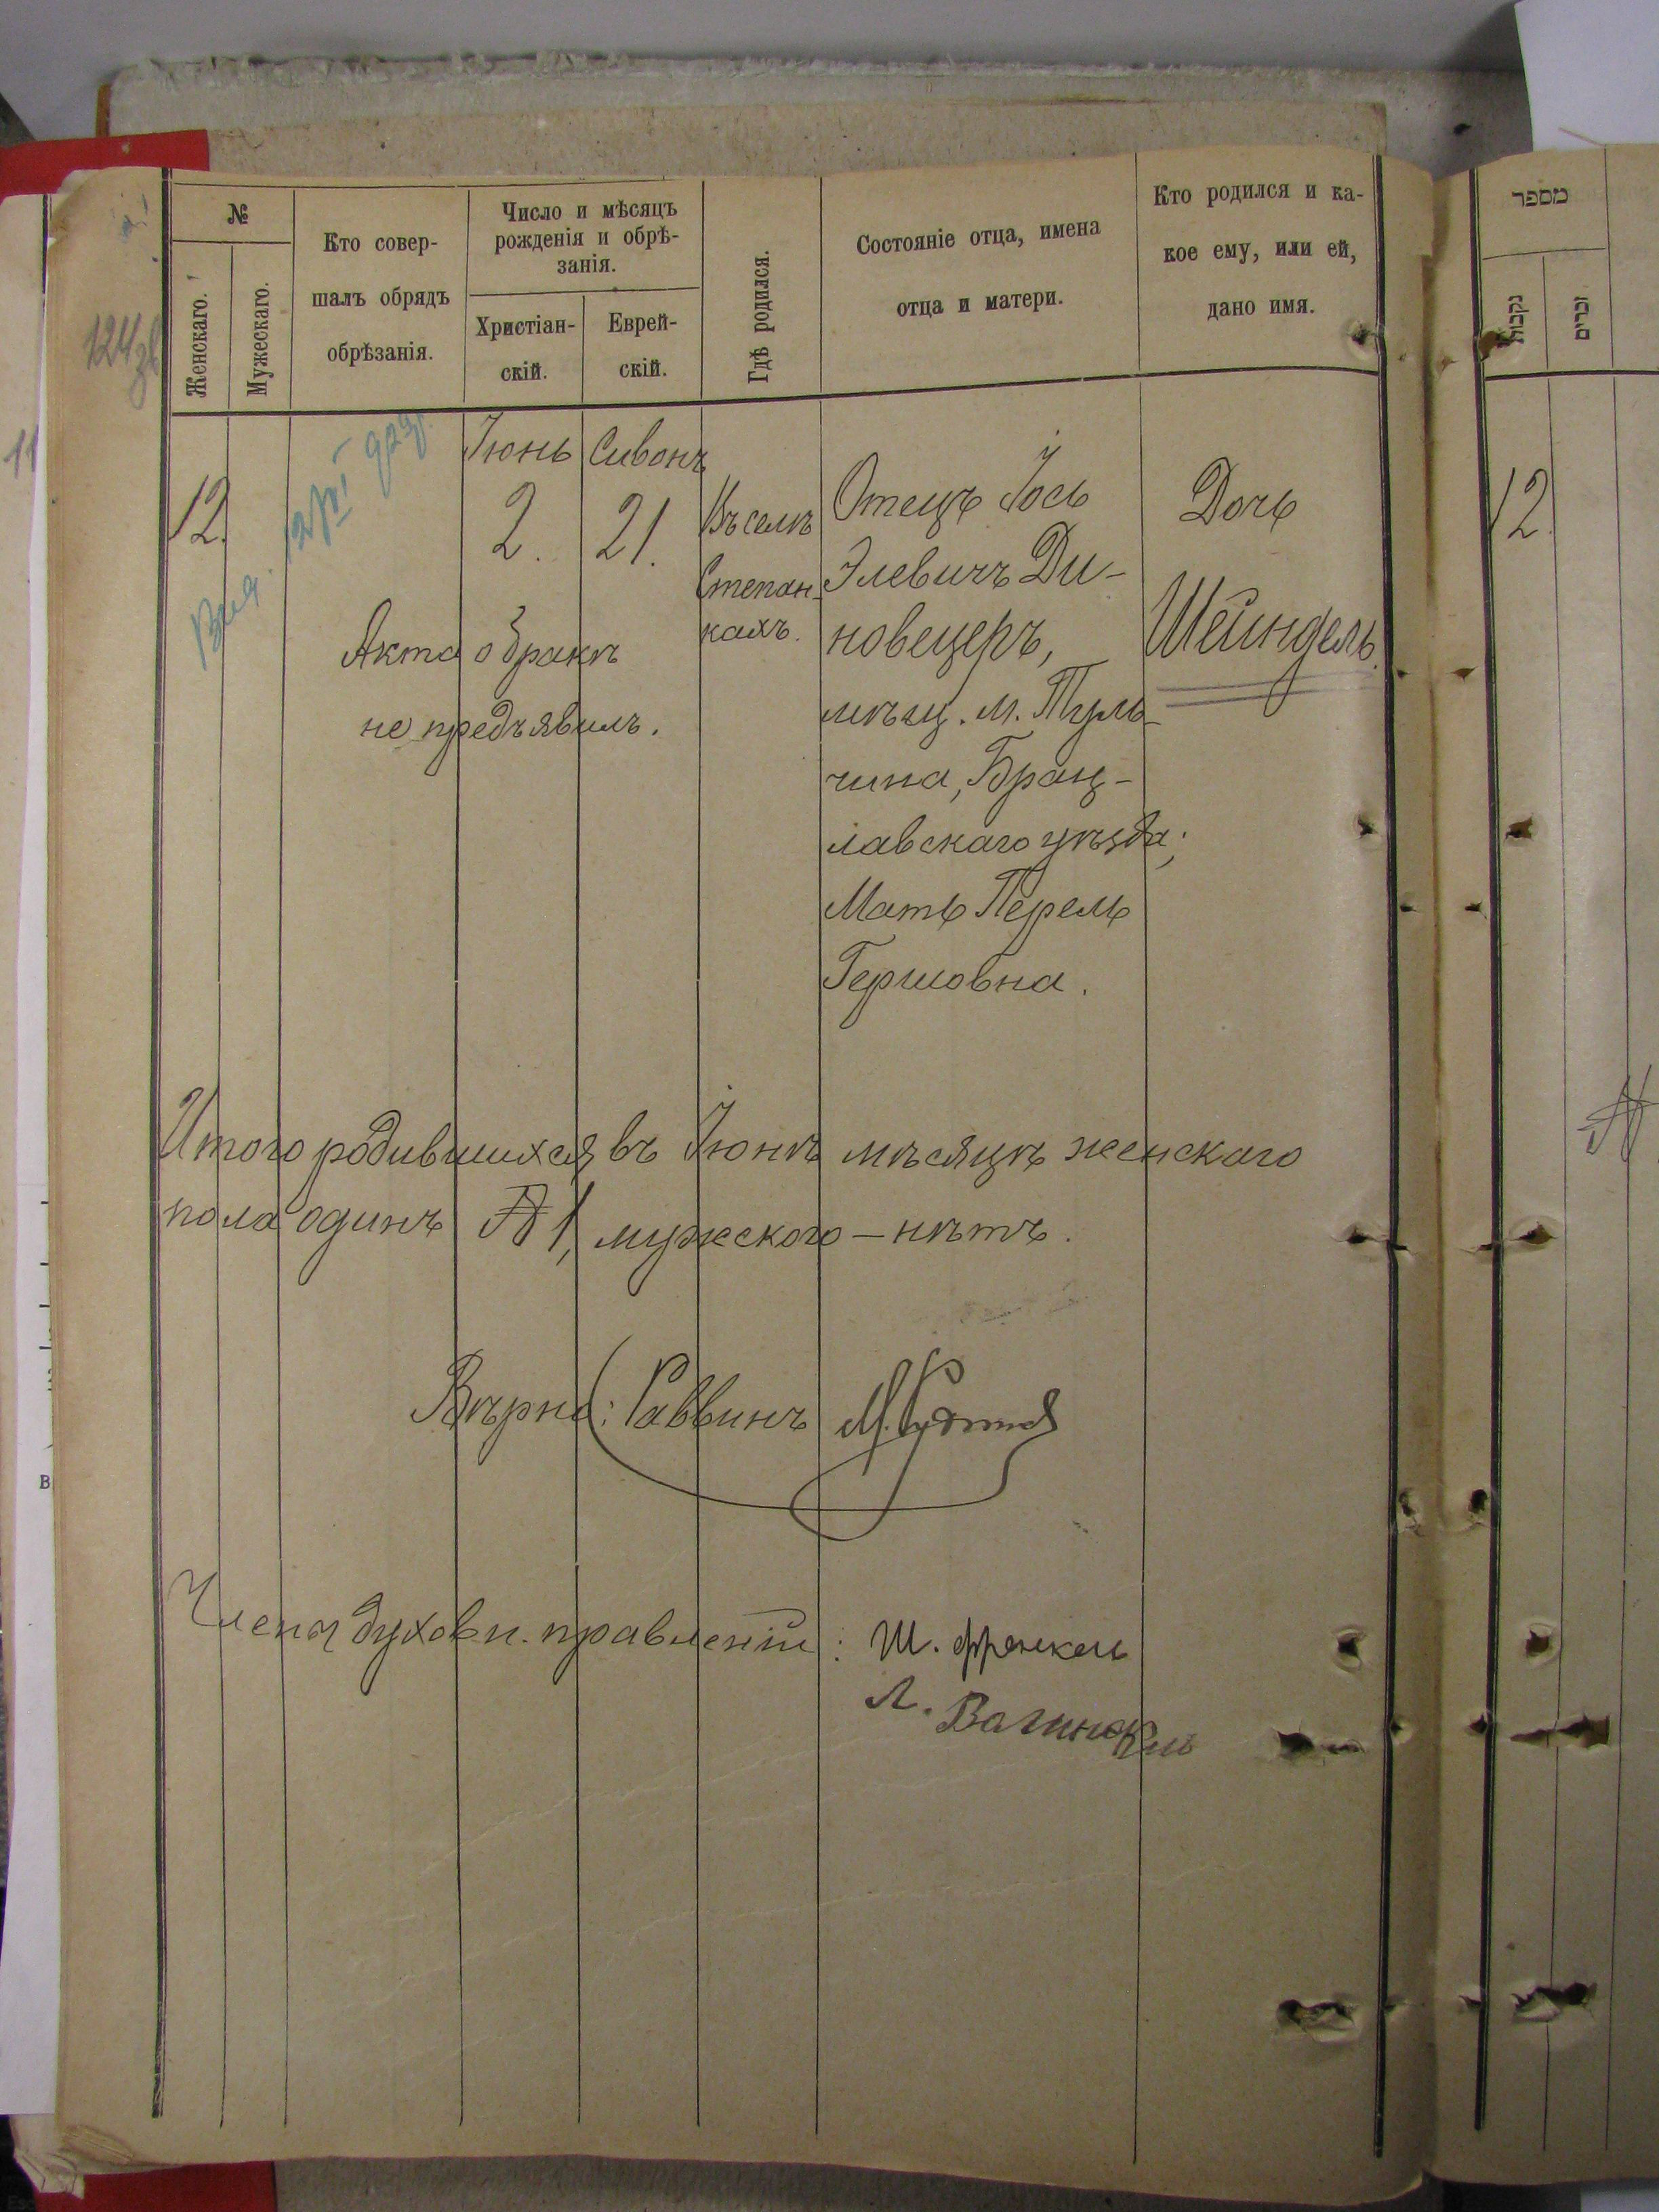 №
Женскаго.
Мужескаго.
Кто совер-
шалъ обрядъ
обрѣзанія.
Число и мѣсяцъ
рожденія и обрѣ-
занія.
Христіан-
скій.
Еврей-
скій.
Гдѣ родился.
Состояніе отца, имена
отца и матери.
Кто родился и ка-
кое ему, или ей,
дано имя.
124
Іюнь Сивонъ
12.
2. 21.
Въ селѣ
Степан-
кахъ.
Отецъ Іось
Элевичъ Ди-
новецеръ,
мѣщ. м. Туль-
чина, Брац-
лавскаго уѣзда;
Мать Перель
Гершовна.
Дочь
Шейндель.
Акта о бракѣ
не предъявилъ.
Итого родившихся въ Іюнѣ мѣсяцѣ женскаго
пола одинъ 1, мужеского – нѣтъ.
Вѣрно: Раввинъ
Члены духовн. правленія: Ш. Френкель
Л.
מספר
נקבות
זכרים
12.